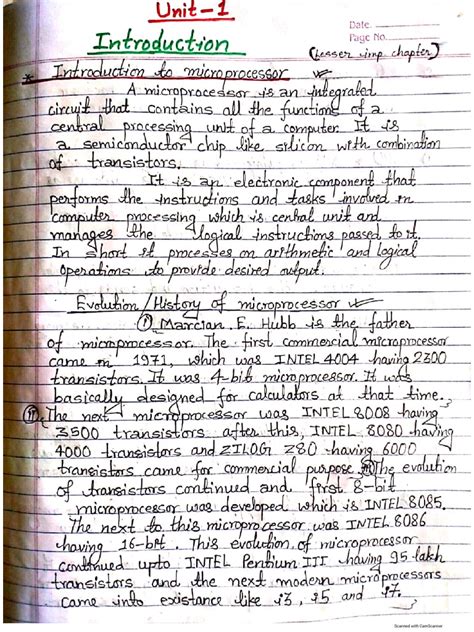 Unit-1
Date.
Page No.
Introduction
(Lesser imp. chapter)
* Introduction to microprocessor
A microprocessor is an integrated
circuit that contains all the functions of a
central processing unit of a computer. It is
a semiconductor chip like silicon with combination
of transistors.
It is an electronic component that
performs the instructions and tasks involved in
computer processing which is central unit and
manages the logical instructions passed to it.
In short it processes on arithmetic and logical
operations to provide desired output.
Evolution/History of microprocessor
(i) Marcian E. Hubb is the father
of microprocessor. The first commercial microprocessor
came in 1971, which was INTEL 4004 having 2300
transistors. It was 4-bit microprocessor. It was
basically designed for calculators at that time.
(ii) The next microprocessor was INTEL 8008 having
3500 transistors after this, INTEL 8080 having
4000 transistors and ZILOG Z80 having 6000
transistors came for commercial purpose. (iii) The evolution
of transistors continued and first 8-bit
microprocessor was developed which is INTEL 8085.
The next to this microprocessor was INTEL 8086
having 16-bit. This evolution of microprocessor
continued upto INTEL Pentium III having 95 lakh
transistors and the next modern microprocessors
came into existance like i3, i5 and i7.
Scanned with CamScanner